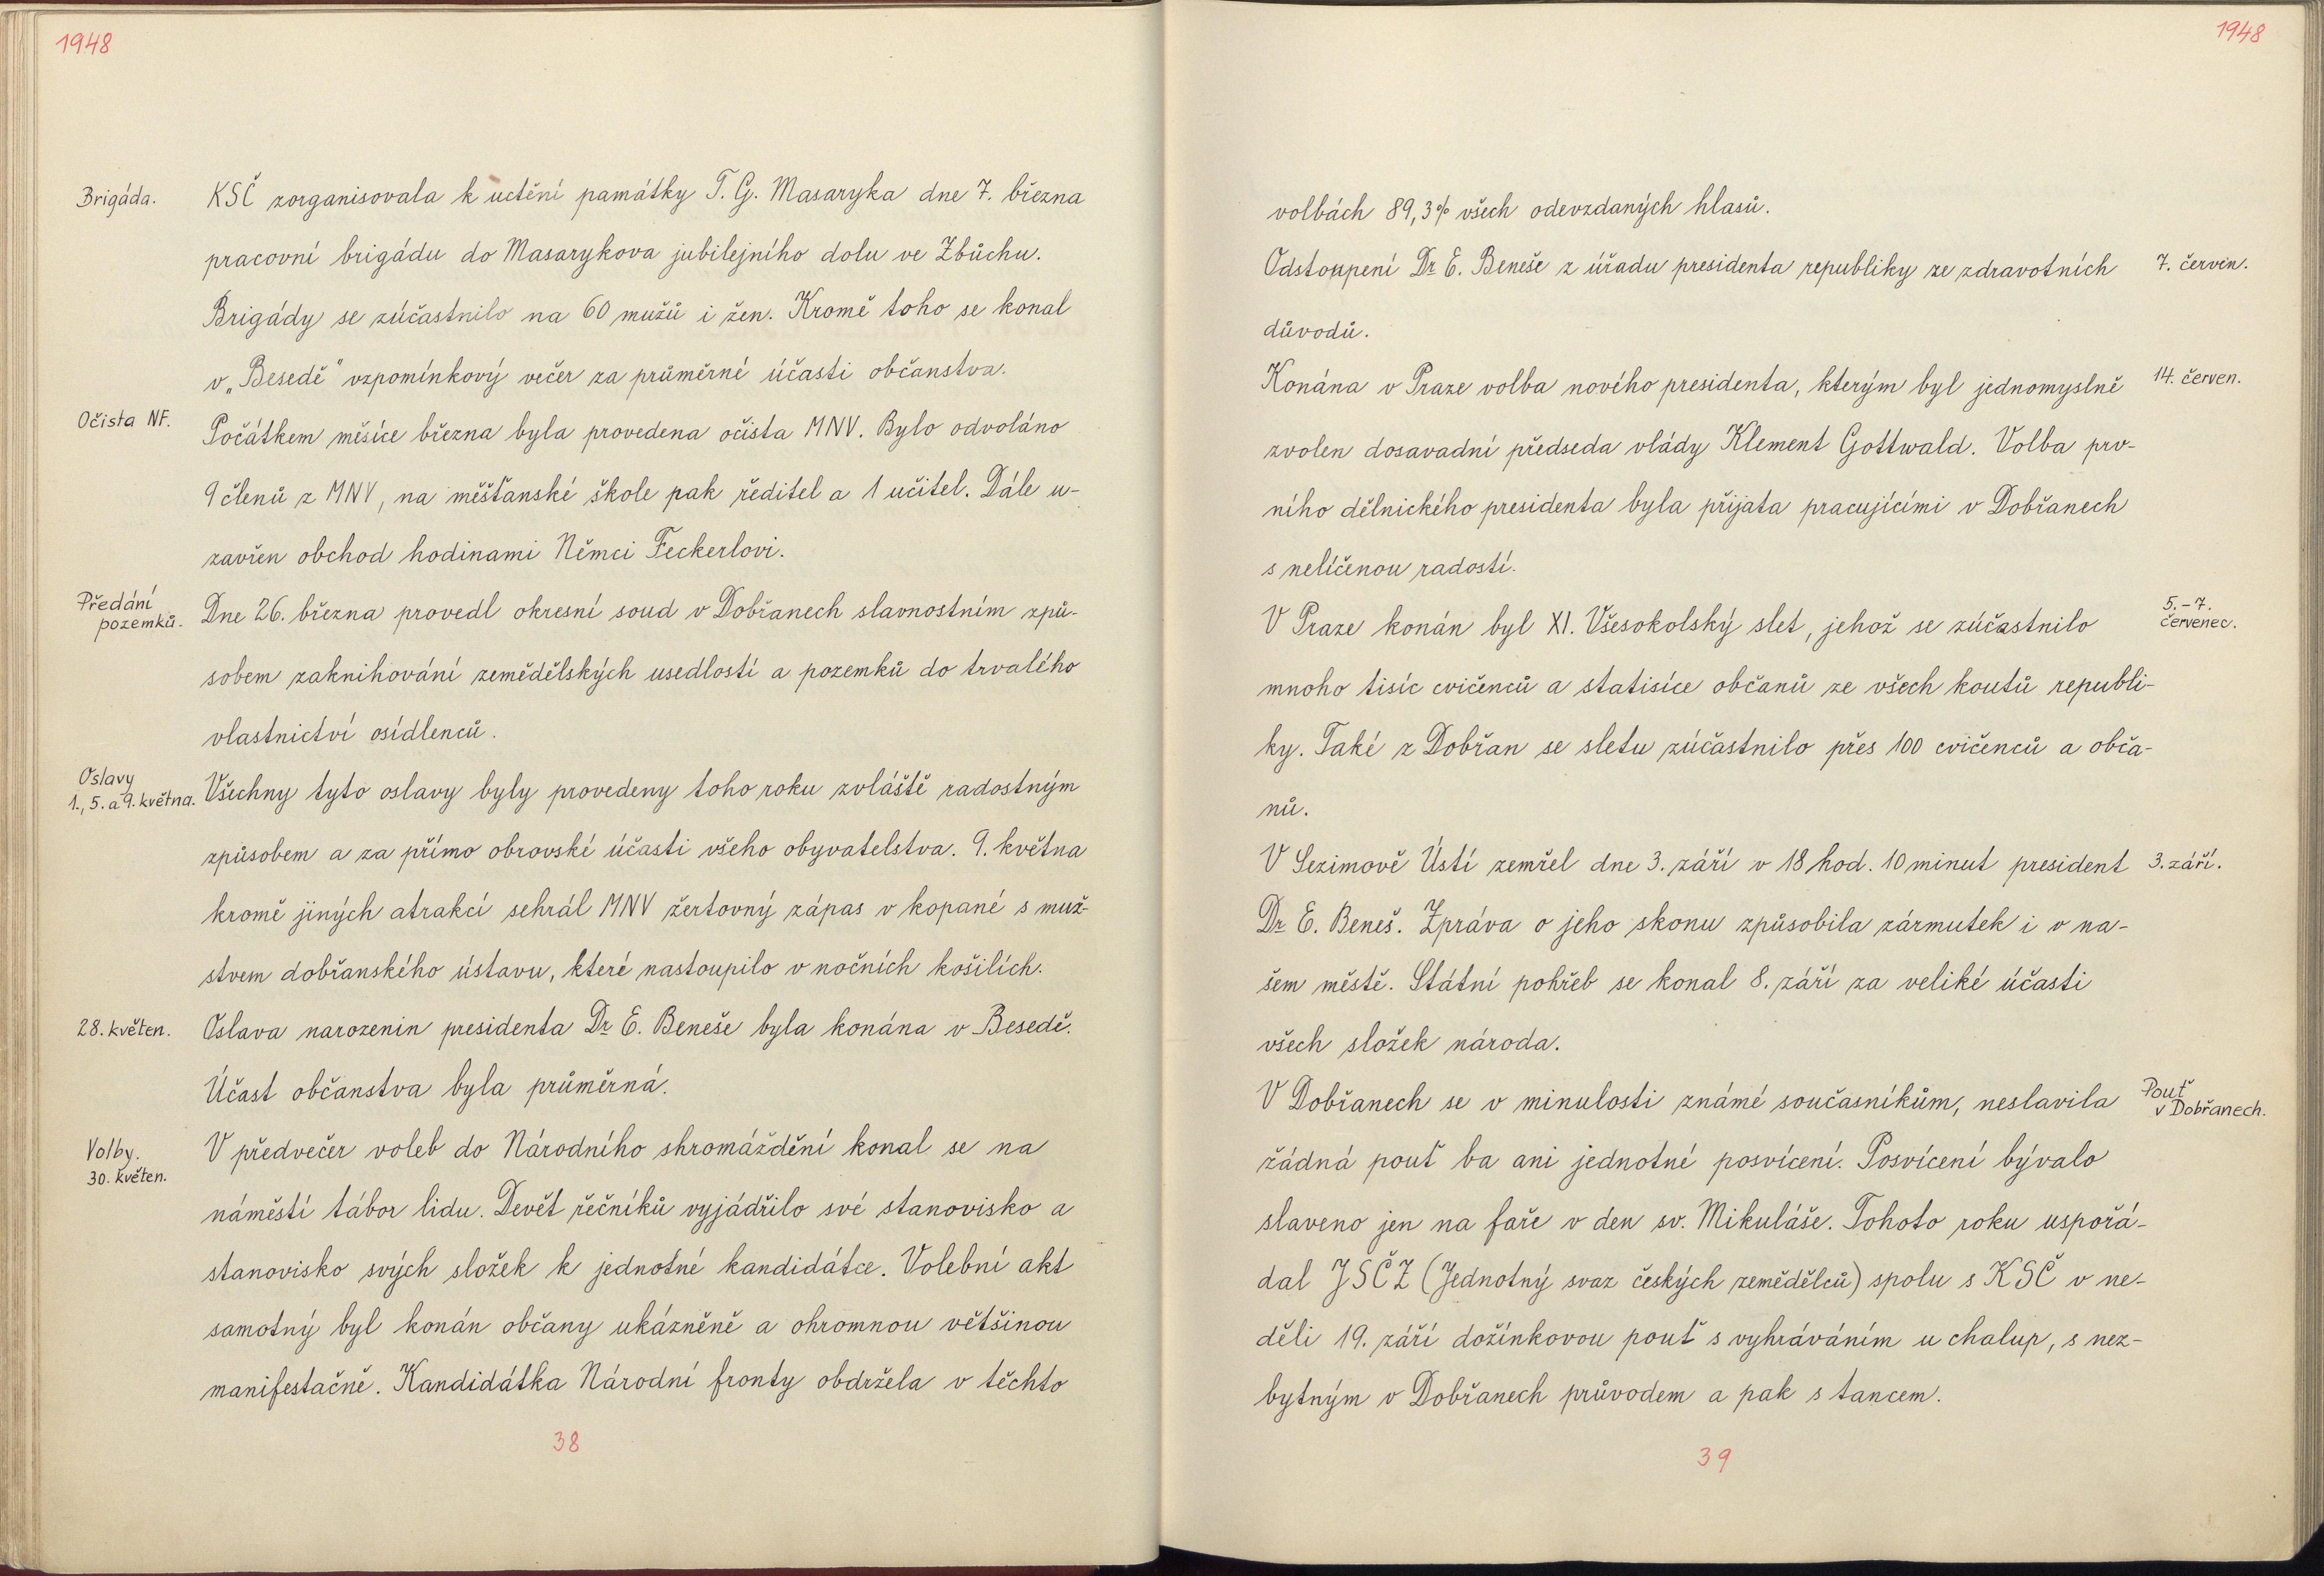 1948
Brigáda.
KSČ zorganisovala k uctění památky T. G. Masaryka dne 7. března
pracovní brigádu do Masarykova jubilejního dolu ve Zbůchu.
Brigády se zúčastnilo na 60 mužů i žen. Kromě toho se konal
v „Besedě" vzpomínkový večer za průměrné účasti občanstva.
Očista NF.
Počátkem měsíce března byla provedena očista MNV. Bylo odvoláno
9 členů z MNV, na měšťanské škole pak ředitel a 1 učitel. Dále u-
zavřen obchod hodinami Němci Feckerlovi.
Předání
pozemků.
Dne 26. března provedl okresní soud v Dobřanech slavnostním způ-
sobem zaknihování zemědělských usedlostí a pozemků do trvalého
vlastnictví osídlenců.
Oslavy
1., 5. a 9. května.
Všechny tyto oslavy byly provedeny toho roku zvláště radostným
způsobem a za přímo obrovské účasti všeho obyvatelstva. 9. května
kromě jiných atrakcí sehrál MNV žertovný zápas v kopané s muž-
stvem dobřanského ústavu, které nastoupilo v nočních košilích.
28. květen.
Oslava narozenin presidenta Dr E. Beneše byla konána v Besedě.
Účast občanstva byla průměrná.
Volby.
30. květen.
V předvečer voleb do Národního shromáždění konal se na
náměstí tábor lidu. Devět řečníků vyjádřilo své stanovisko a
stanovisko svých složek k jednotné kandidátce. Volební akt
samotný byl konán občany ukázněně a ohromnou většinou
manifestačně. Kandidátka Národní fronty obdržela v těchto
38
1948
volbách 89,3% všech odevzdaných hlasů.
Odstoupení Dr E. Beneše z úřadu presidenta republiky ze zdravotních
7. červen.
důvodů.
Konána v Praze volba nového presidenta, kterým byl jednomyslně
14. červen.
zvolen dosavadní předseda vlády Klement Gottwald. Volba prv-
ního dělnického presidenta byla přijata pracujícími v Dobřanech
s nelíčenou radostí.
V Praze konán byl XI. Všesokolský slet, jehož se zúčastnilo
5.-7.
červenec.
mnoho tisíc cvičenců a statisíce občanů ze všech koutů republi-
ky. Také z Dobřan se sletu zúčastnilo přes 100 cvičenců a obča-
nů.
V Sezimově Ústí zemřel dne 3. září v 18 hod. 10 minut president
3. září.
Dr E. Beneš. Zpráva o jeho skonu způsobila zármutek i v na-
šem městě. Státní pohřeb se konal 8. září za veliké účasti
všech složek národa.
V Dobřanech se v minulosti známé současníkům, neslavila
Pouť
v Dobřanech.
žádná pouť ba ani jednotné posvícení. Posvícení bývalo
slaveno jen na faře v den sv. Mikuláše. Tohoto roku uspořá-
dal JSČZ (Jednotný svaz českých zemědělců) spolu s KSČ v ne-
děli 19. září dožínkovou pouť s vyhráváním u chalup, s nez-
bytným v Dobřanech průvodem a pak s tancem.
39